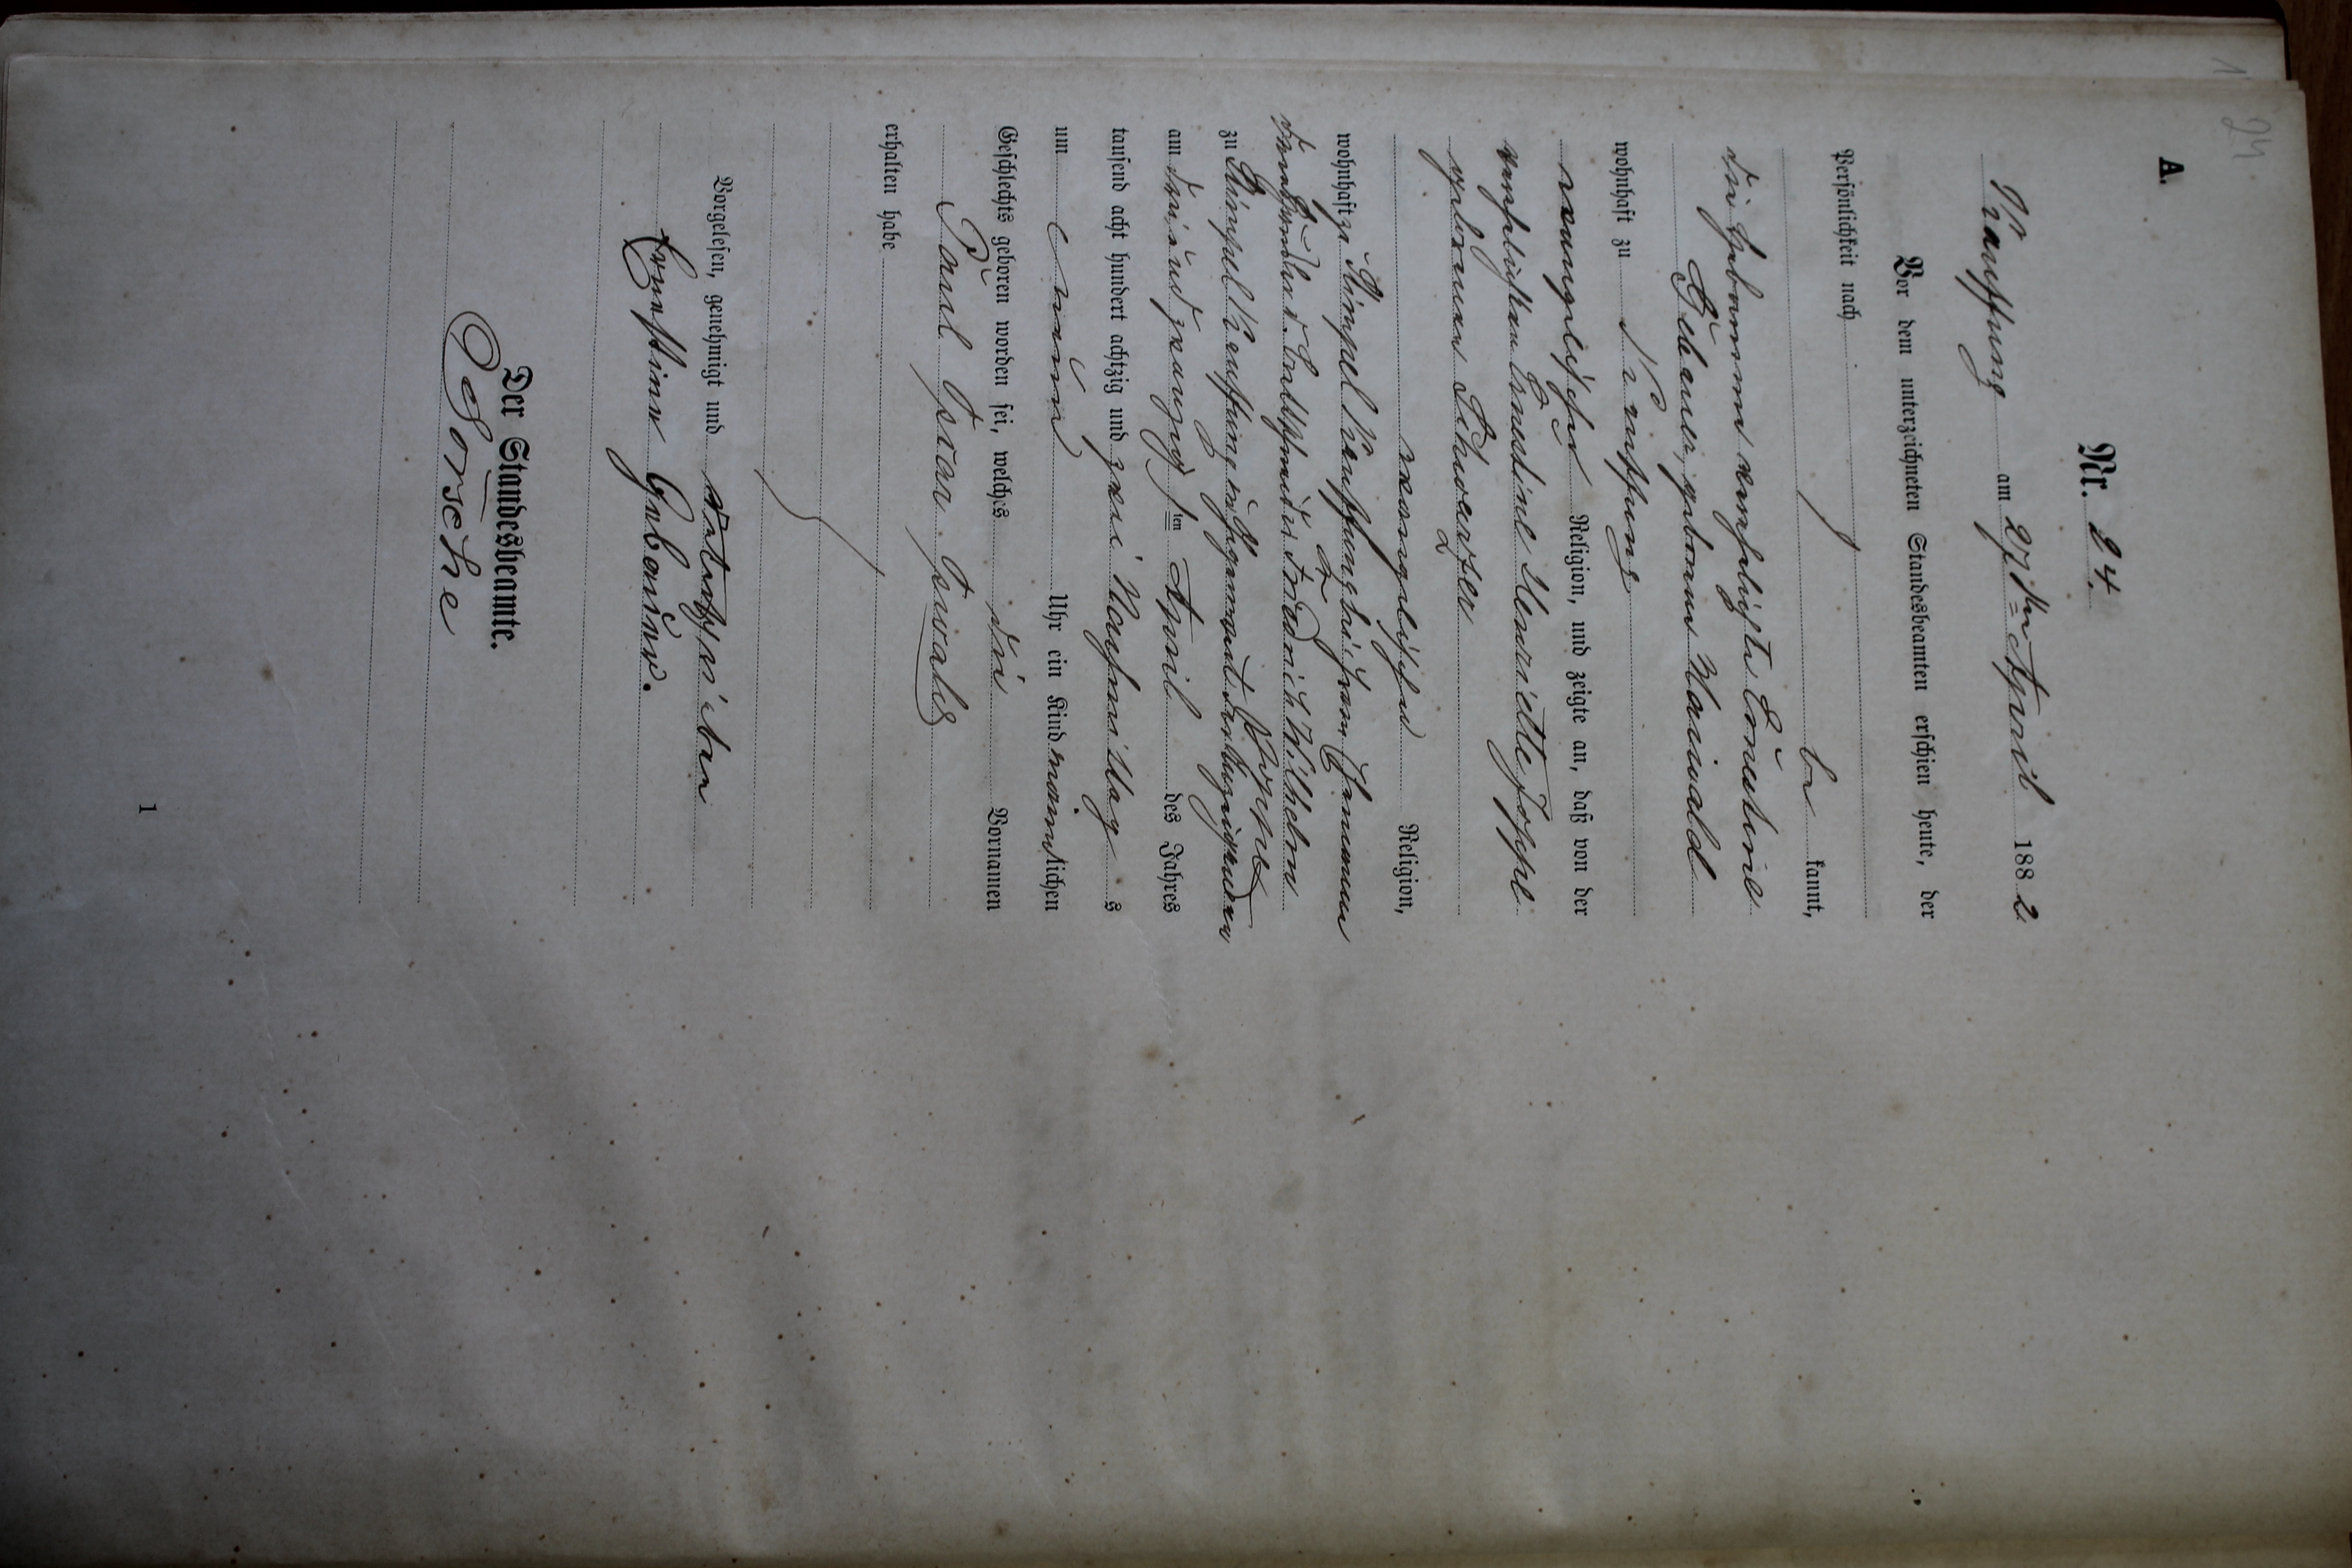 24.
1
A.
Nr. 24.
Kauffung am 27ten April 1882
Vor dem unterzeichneten Standesbeamten erschien heute, der
Persönlichkeit nach
be kannt,
die Hebamme verehelichte Ernestine
Gebauer, geborene Maiwald
wohnhaft zu Kauffung
evangelischer Religion, und zeigte an, daß von der
verehelichten Ernestine Henriette Hoppe
geborenen Schwarzer
evangelischer Religion,
wohnhaft zu Stimpel Kauffung bei ihrem Ehemann
dem Friedrich Wilhelm
Hoppe
zu Stimpel Kauffung in ihrer
am drei und zwanzig sten April des Jahres
tausend acht hundert achtzig und zwei Nachmittag s
um neun Uhr ein Kind männlichen
Geschlechts geboren worden sei, welches die Vornamen
Paul Oscar Oswald
erhalten habe
Vorgelesen, genehmigt und unterschrieben
Ernestine Gebauer.
Der Standesbeamte.
1